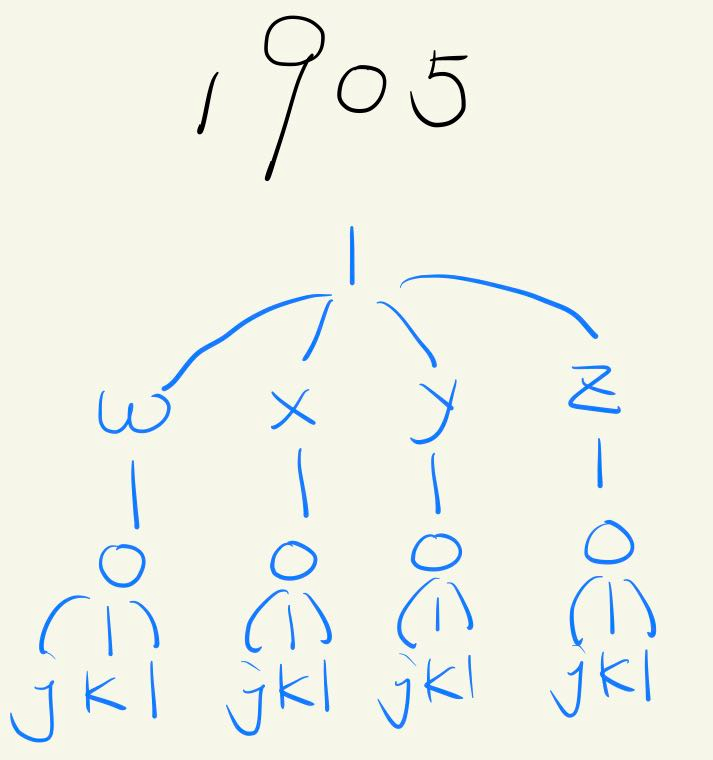 1905
1
w x y z
0 0 0 0
j k l j k l j k l j k l